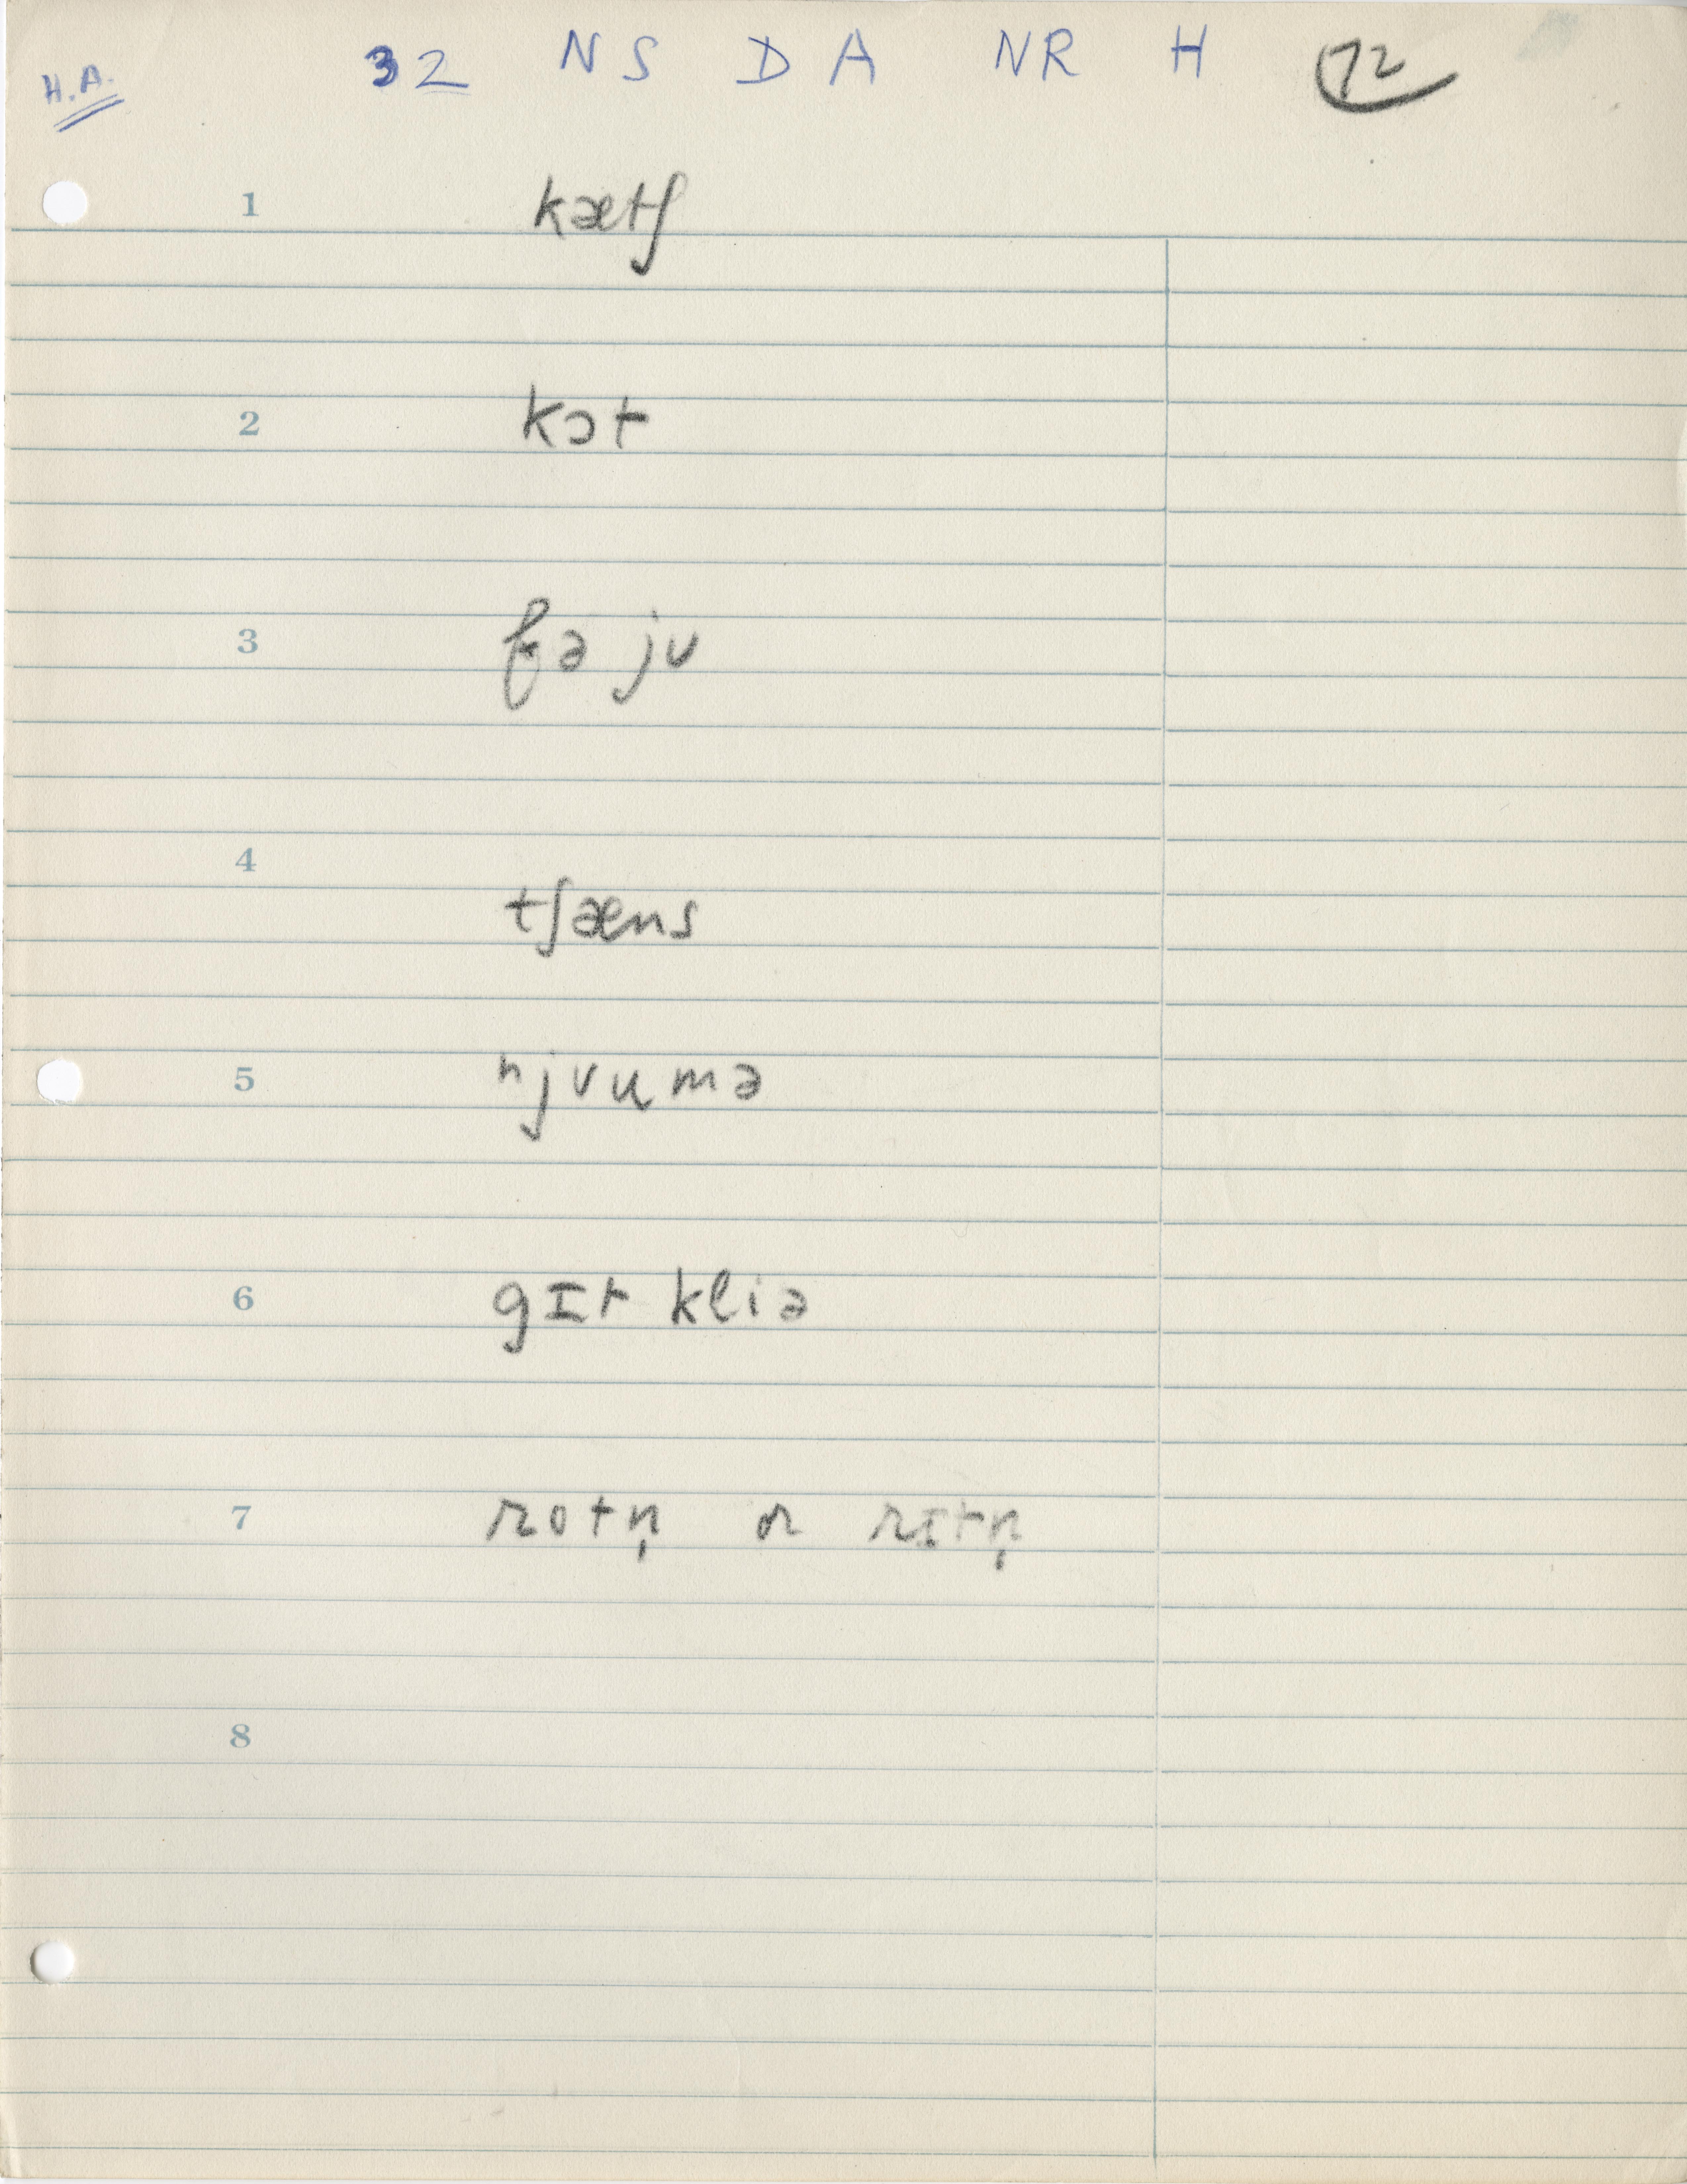 H.A. 32 NS DA NR H 72
1 kætʃ
2 kɔt
3 fə jʊ
4 tʃæns
5 njʊumə
6 gɪt kliə
7 rotn̩ or rɪtn̩
8